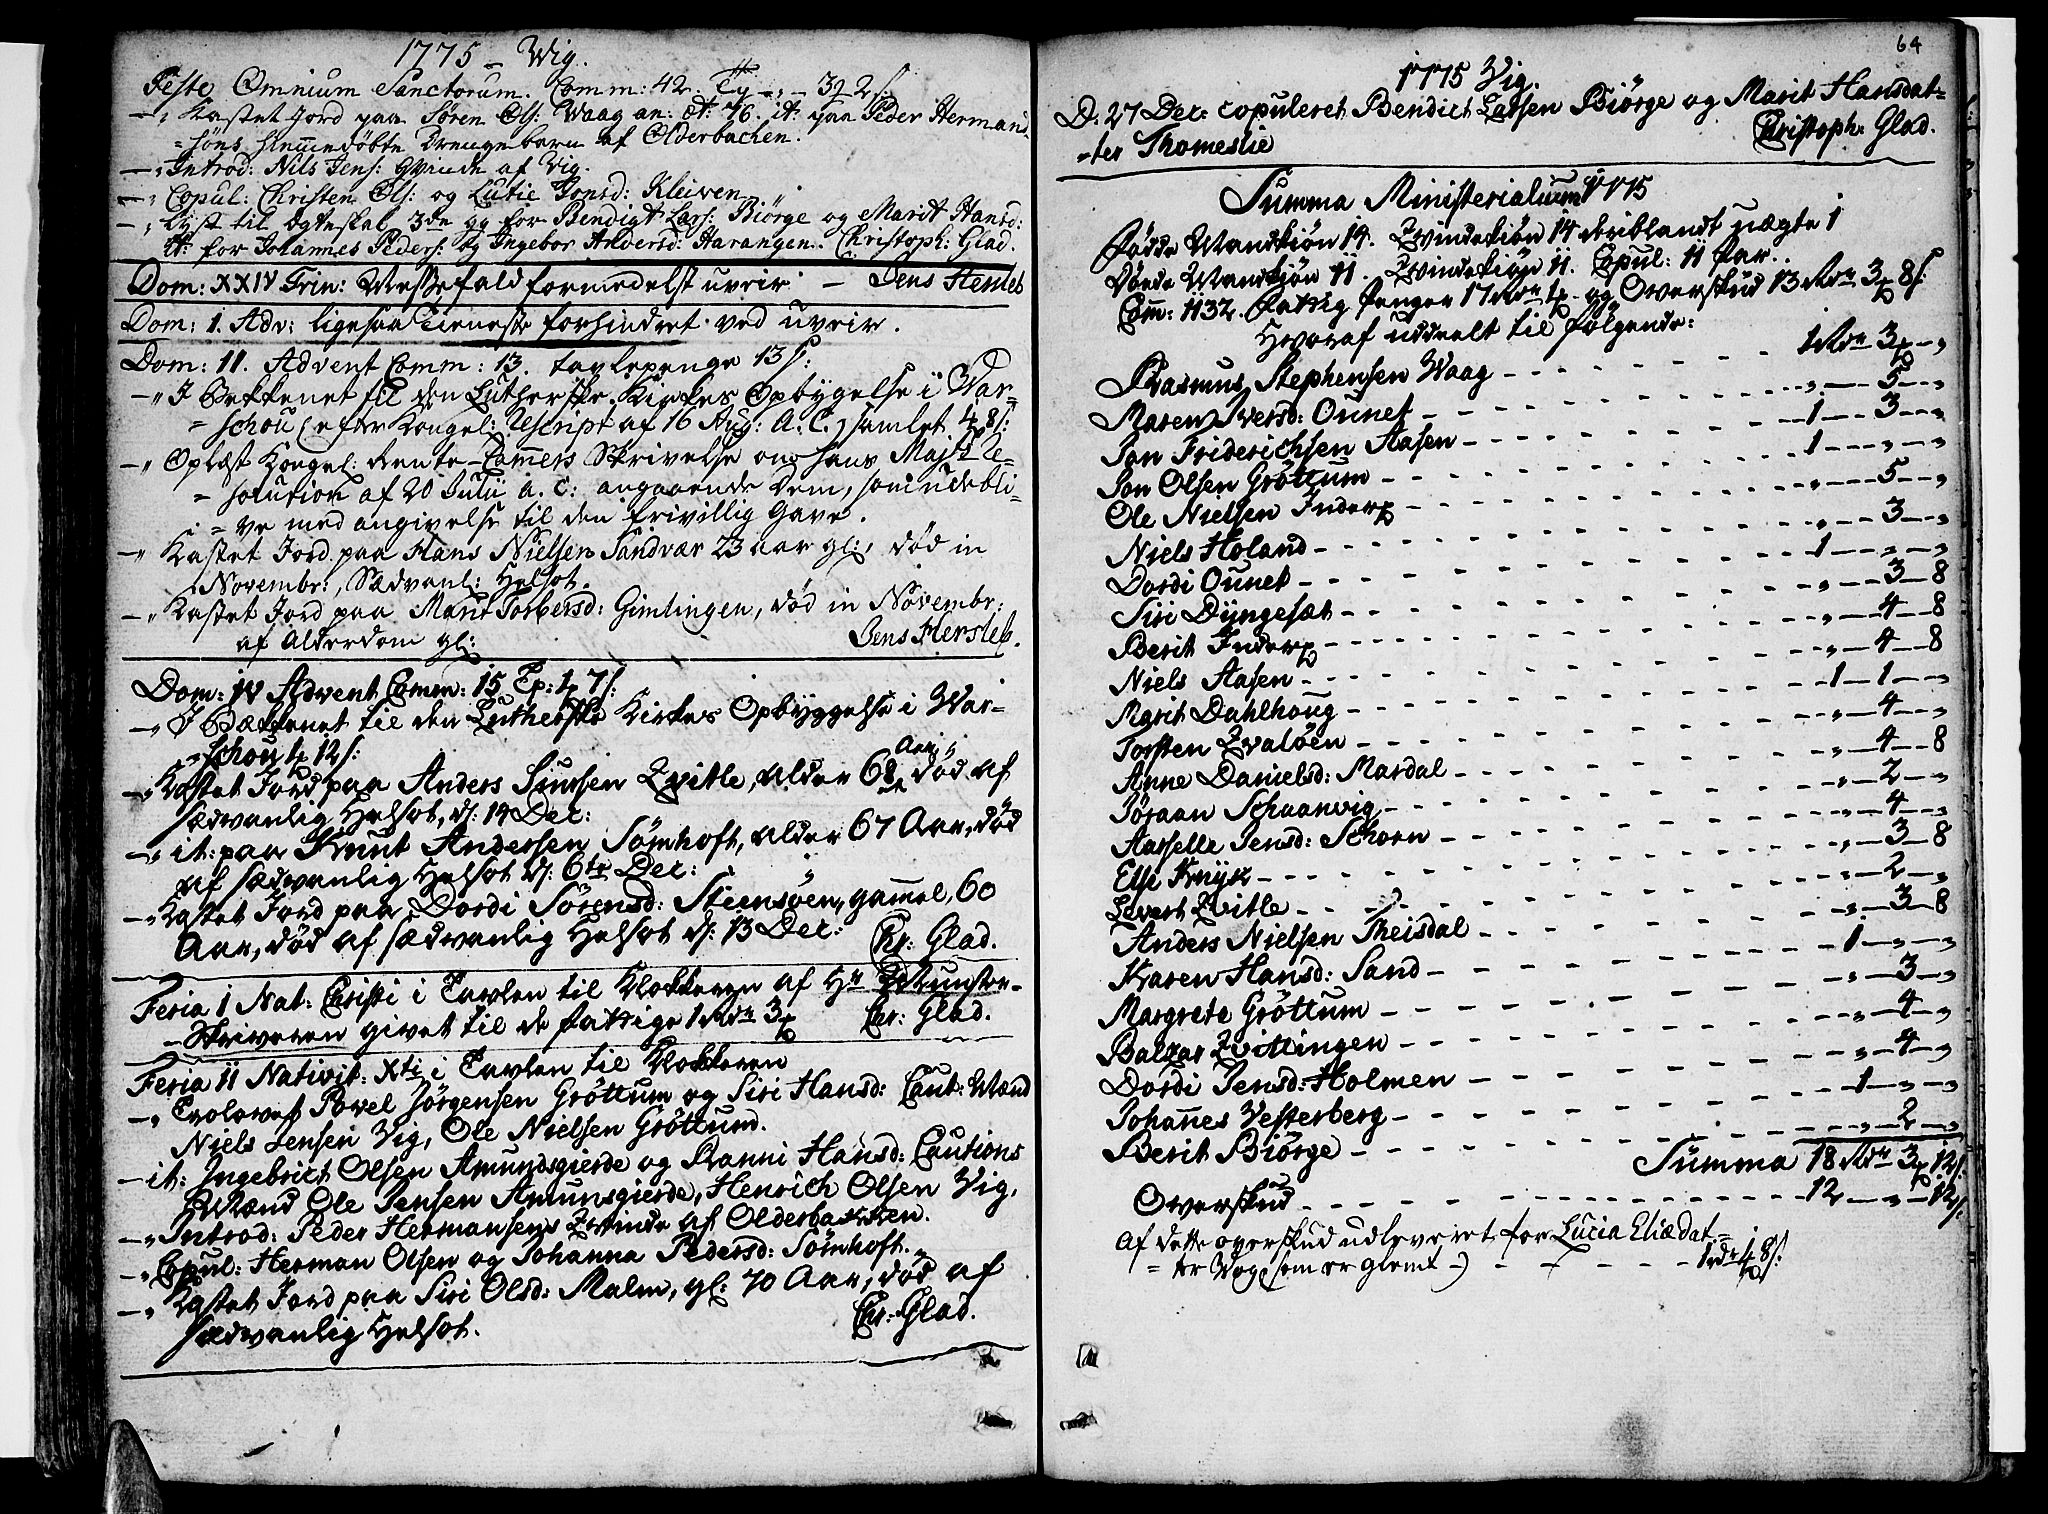 1775 – Wig.
Festo Omnium Sanctorum. Comm: 42. Tp – „ – 3ꝶ 2 ſ:
–„ Kastet Jord paa Søren Ols: Waag an: æt: 76. it: paa Peder Hermand
= søns hiemmedøbte Drengebarn af Olderbachen.
–„ Introd: Nils Jens: Qvinde af Vig.
–„ Copul: Christen Ols: og Lutie Jonsd: Kleiven
–„ Lyst til Ægteskab 3de gg for Bendigt Lars: Biørge og Marit Hansd:
it: for Johannes Peders: og Ingebor Andersd: Harangen. Christoph: Glad.
Dom: XXIV Trin: Messefald formedelst uveir – Jens Hersleb
Dom: 1. Adv: ligesaa Tieneste forhindret ved uveir.
Dom: 11. Advent Comm: 13. tavlepenge 13 ſ:
–„ I Bekkenet til den Lutherske Kirkes Opbygelse i War-
= schou (efter Kongel: Rescript af 16 Aug: A. C.) samlet 4ꝶ 8 ſ:
–„ Oplæst Kongel: Rente-Cammers Skrivelse om hans Majts Re-
= solution af 20 Julii a. c: angaaende Dem, som udebli-
= ve med angivelse til den frivillig Gave.
–„ Kastet Jord paa Hans Nielsen Sandvær 23 aar gl:, død in
Novembr:, Sædvanl: Helsot.
–„ Kastet Jord paa Marit Torbersd: Gimlingen, død in Novembr:
af Alderdom gl: Jens Hersleb.
Dom: IV Advent Comm: 15 Tp: 1ꝶ 7 ſ:
–„ I Bækkenet til den Lutherske Kirkes Opbyggelse i War-
= schou 1ꝶ 12 ſ:
–„ Kastet Jord paa Anders Siursen Qvitle, alder 68 Aar, død af
sædvanlig Helsot, d: 14 Dec:
–„ it: paa Knut Andersen Sømhoft, alder 67 Aar, død
af sædvanlig Helsot d: 6te Dec:
–„ Kastet Jord paa Dordi Sørensd: Steensøen, gammel, 60
Aar, død af sædvanlig Helsot d: 13 Dec: Chr: Glad.
Feria 1 Nat: Christi i Tavlen til Klokkeren af Hr Munster-
–Skriveren givet til de fattige 1 Rdr 3ꝶ Chr: Glad.
Feria 11 Nativit: Xti i Tavlen til Klokkeren
–„ Trolovet Povel Jørgensen Grøttum og Siri Hansd: Caut: Mænd
Niels Jensen Vig, Ole Nielsen Grøttum.
–it: Ingebrict Olsen Amundsgierde og Ranni Hansd: Cautions
Mænd Ole Jensen Amunsgierde, Henrich Olsen Vig.
–„ Introd: Peder Hermansens Qvinde af Olderbakken.
–„ Copul: Herman Olsen og Johanna Pedersd: Sømhoft.
–„ Kastet Jord paa Siri Olsd: Malm, gl: 70 Aar, død af
sædvanlig Helsot. Chr: Glad.
64
1775 Vig.
D. 27 Dec: copuleret Bendict Larsen Biørge og Marit Hansdat-
-ter Thomeslie Christoph: Glad.
Summa Ministerialium 1775
Fødde Mandkiøn 14. Qvindekiøn 14 deriblandt uægte 1
Døede Mandkiøn 11. Qvindekiøn 11. Copul: 11 Par.
Com: 1132. Fattig Penger 17 Rdr 1ꝶ. og Overskud 13 Rdr 3ꝶ 8 ſ:
Hvoraf uddeelt til følgende:
Rasmus Stephensen Waag – – – 1 Rdr 3ꝶ – „
Maren Iversd: Ounet – – – „ – 5 – „
Jon Friderichsen Aasen – – – 1 – 3 – „
Jon Olsen Grøttum – – – 1 – „ – „
Ole Nielsen Inderꝶ – – – „ – 5 – „
Niels Holand – – – „ – 3 – „
Dordi Ounet – – – 1 – „ – „
Siri Dyngesæt – – – „ – 3 – 8
Berit Inderꝶ – – – „ – 4 – 8
Niels Aasen – – – „ – 4 – 8
Marit Dahlhoug – – – 1 – 1 – „
Torsten Qvaløen – – – „ – 4 – „
Anne Danielsd: Mardal – – – „ – 4 – 8
Jøraan Schaanvig – – – „ – 2 – „
Aasselle Jensd: Schorn – – – „ – 4 – „
Else Knyk – – – „ – 3 – 8
Levert Qvitle – – – „ – 2 – „
Anders Nielsen Theisdal – – – „ – 3 – 8
Karen Hansd: Sand – – – 1 – „ – „
Margrete Grøttum – – – „ – 3 – „
Balzar Qvittingen – – – „ – 4 – „
Dordi Jensd: Holmen – – – „ – 4 – „
Johannes Vesterberg – – – 1 – „ – „
Berit Biørge – – – „ – 2 – „
Summa 18 Rdr 3ꝶ 12 ſ:
Overskud – – – 12 – „ – 12 ſ:
Af dette overskud udleveret for Lucia Eliædat-
= ter Vog (som er glemt –) – – – 1 rdr 1ꝶ 8 ſ: